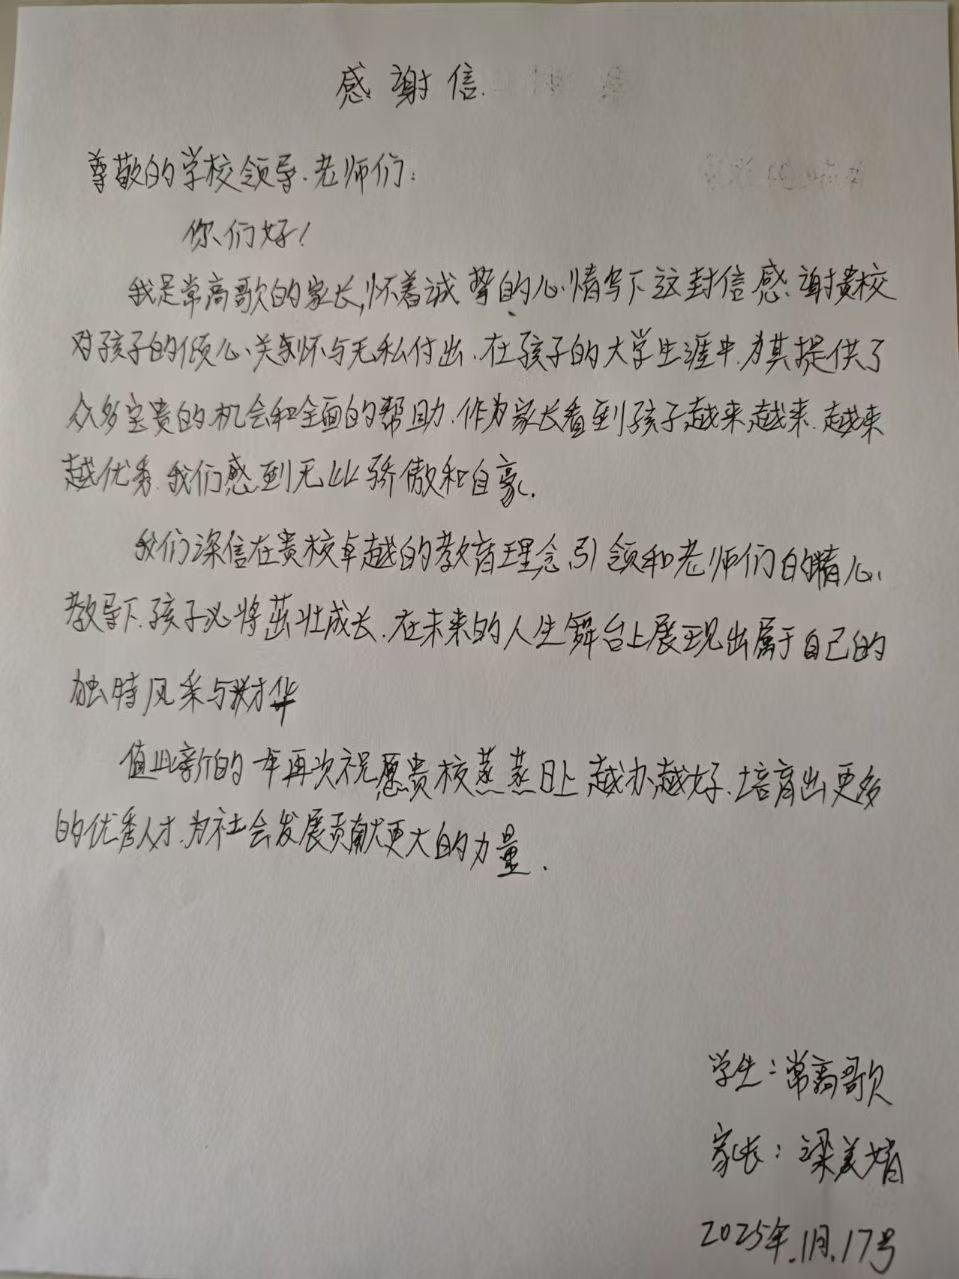 感谢信.
尊敬的学校领导.老师们:
你们好!
我是常高歌的家长,怀着诚挚的心情写下这封信感谢贵校
对孩子的倾心关怀与无私付出.在孩子的大学生涯中.为其提供了
众多宝贵的机会和全面的帮助.作为家长看到孩子越来越来.越来
越优秀.我们感到无比骄傲和自豪.
我们深信在贵校卓越的教育理念引领和老师们的精心
教导下.孩子必将茁壮成长.在未来的人生舞台上展现出属于自己的
独特风采与才华
值此新的一年再次祝愿贵校蒸蒸日上越办越好.培育出更多
的优秀人才.为社会发展贡献更大的力量.
学生:常高歌
家长:梁美娟
2025年.11月.17号